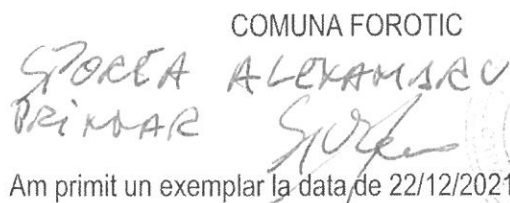 COMUNA FOROTIC
SPOREA ALEXANDRU
PRIMAR
Am primit un exemplar la data de 22/12/2021